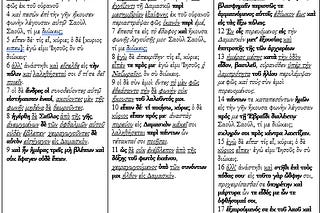 φῶς ἐκ τοῦ οὐρανοῦ
4 καὶ πεσὼν ἐπὶ τὴν γῆν ἤκουσεν
φωνὴν λέγουσαν αὐτῷ Σαούλ,
Σαούλ, τί με διώκεις;
5 εἶπεν δέ τίς εἶ, κύριε; ὁ δέ [κυρίος
ειπεν]· ἐγώ εἰμι Ἰησοῦς ὃν σὺ
διώκεις·
6 ἀλλὰ ἀνάστηθι καὶ εἴσελθε εἰς τὴν
πόλιν καὶ λαληθήσεταί σοι ὅ τί σε δεῖ
ποιεῖν.
7 οἱ δὲ ἄνδρες οἱ συνοδεύοντες αὐτῷ
εἱστήκεισαν ἐνεοί, ἀκούοντες μὲν τῆς
φωνῆς μηδένα δὲ θεωροῦντες.
8 ἠγέρθη δὲ Σαῦλος ἀπὸ τῆς γῆς,
ἀνεῳγμένων δὲ τῶν ὀφθαλμῶν αὐτοῦ
οὐδὲν ἔβλεπεν· χειραγωγοῦντες δὲ
αὐτὸν εἰσήγαγον εἰς Δαμασκόν.
9 καὶ ἦν ἡμέρας τρεῖς μὴ βλέπων καὶ
οὐκ ἔφαγεν οὐδὲ ἔπιεν.
ἐγγίζοντι τῇ Δαμασκῷ περὶ
μεσημβρίαν ἐξαίφνης ἐκ τοῦ οὐρανοῦ
περιαστράψαι φῶς ἱκανὸν περὶ ἐμέ,
7 ἔπεσά τε εἰς τὸ ἔδαφος καὶ ἤκουσα
φωνῆς λεγούσης μοι· Σαοὺλ Σαούλ,
τί με διώκεις;
8 ἐγὼ δὲ ἀπεκρίθην· τίς εἶ, κύριε;
εἶπέν τε πρός με· ἐγώ εἰμι Ἰησοῦς ὁ
Ναζωραῖος, ὃν σὺ διώκεις.
9 οἱ δὲ σὺν ἐμοὶ ὄντες τὸ μὲν φῶς
ἐθεάσαντο τὴν δὲ φωνὴν οὐκ
ἤκουσαν τοῦ λαλοῦντός μοι.
10 εἶπον δέ· τί ποιήσω, κύριε; ὁ δὲ
κύριος εἶπεν πρός με· ἀναστὰς
πορεύου εἰς Δαμασκὸν κἀκεῖ σοι
λαληθήσεται περὶ πάντων ὧν
τέτακταί σοι ποιῆσαι.
11 ὡς δὲ οὐκ ἐνέβλεπον ἀπὸ τῆς
δόξης τοῦ φωτὸς ἐκείνου,
χειραγωγούμενος ὑπὸ τῶν συνόντων
μοι ἦλθον εἰς Δαμασκόν.
βλασφημεῖν περισσῶς τε
ἐμμαινόμενος αὐτοῖς ἐδίωκον ἕως καὶ
εἰς τὰς ἔξω πόλεις.
12 Ἐν οἷς πορευόμενος εἰς τὴν
Δαμασκὸν μετ' ἐξουσίας καὶ
ἐπιτροπῆς τῆς τῶν ἀρχιερέων
13 ἡμέρας μέσης κατὰ τὴν ὁδὸν
εἶδον, βασιλεῦ, οὐρανόθεν ὑπὲρ τὴν
λαμπρότητα τοῦ ἡλίου περιλάμψαν
με φῶς καὶ τοὺς σὺν ἐμοὶ
πορευομένους.
14 πάντων τε καταπεσόντων ἡμῶν
εἰς τὴν γῆν ἤκουσα φωνὴν λέγουσαν
πρός με τῇ Ἑβραΐδι διαλέκτῳ·
Σαοὺλ Σαούλ, τί με διώκεις;
σκληρόν σοι πρὸς κέντρα λακτίζειν.
15 ἐγὼ δὲ εἶπα· τίς εἶ, κύριε; ὁ δὲ
κύριος εἶπεν· ἐγώ εἰμι Ἰησοῦς ὃν σὺ
διώκεις.
16 ἀλλὰ ἀνάστηθι καὶ στῆθι ἐπὶ τοὺς
πόδας σου· εἰς τοῦτο γὰρ ὤφθην σοι,
προχειρίσασθαί σε ὑπηρέτην καὶ
μάρτυρα ὧν τε εἶδές με ὧν τε
ὀφθήσομαί σοι,
17 ἐξαιρούμενός σε ἐκ τοῦ λαοῦ καὶ